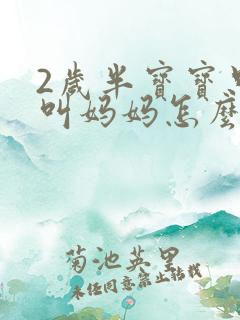 2歲半寶寶
叫媽媽怎麼
菊池英里
未经同意禁止转载